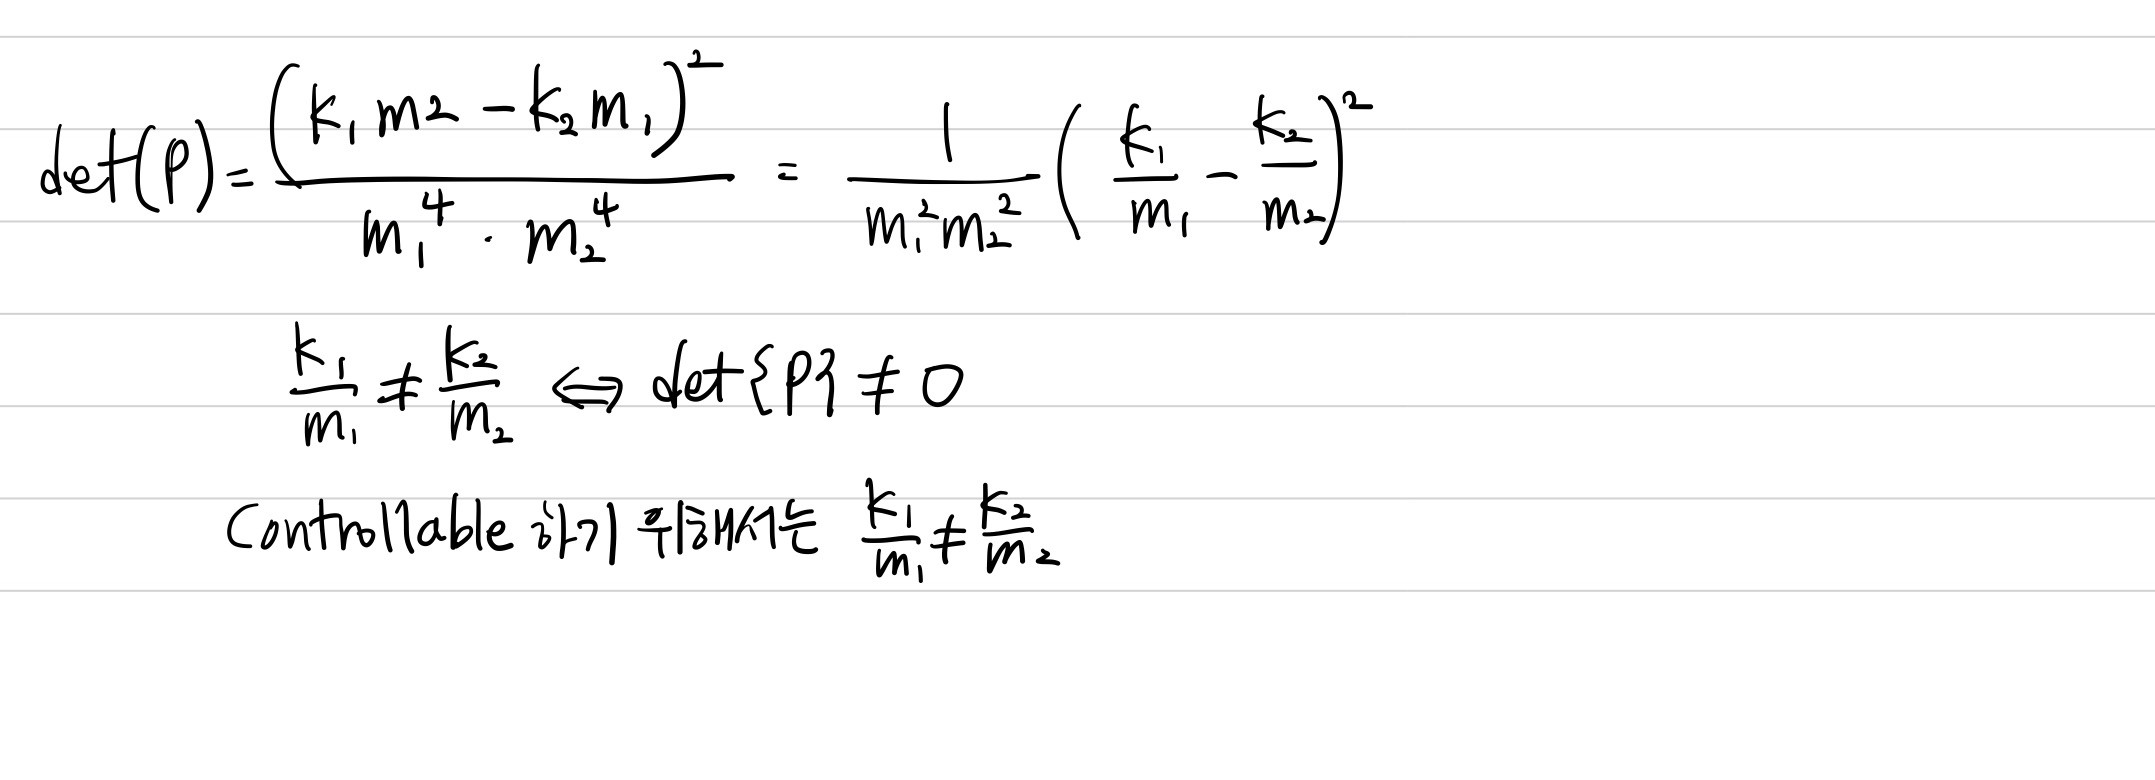 det(P) = (k₁m₂ - k₂m₁)² / (m₁⁴ · m₂⁴) = 1 / (m₁²m₂²) (k₁/m₁ - k₂/m₂)²
k₁/m₁ ≠ k₂/m₂ ⟺ det{P} ≠ 0
Controllable 하기 위해서는 k₁/m₁ ≠ k₂/m₂